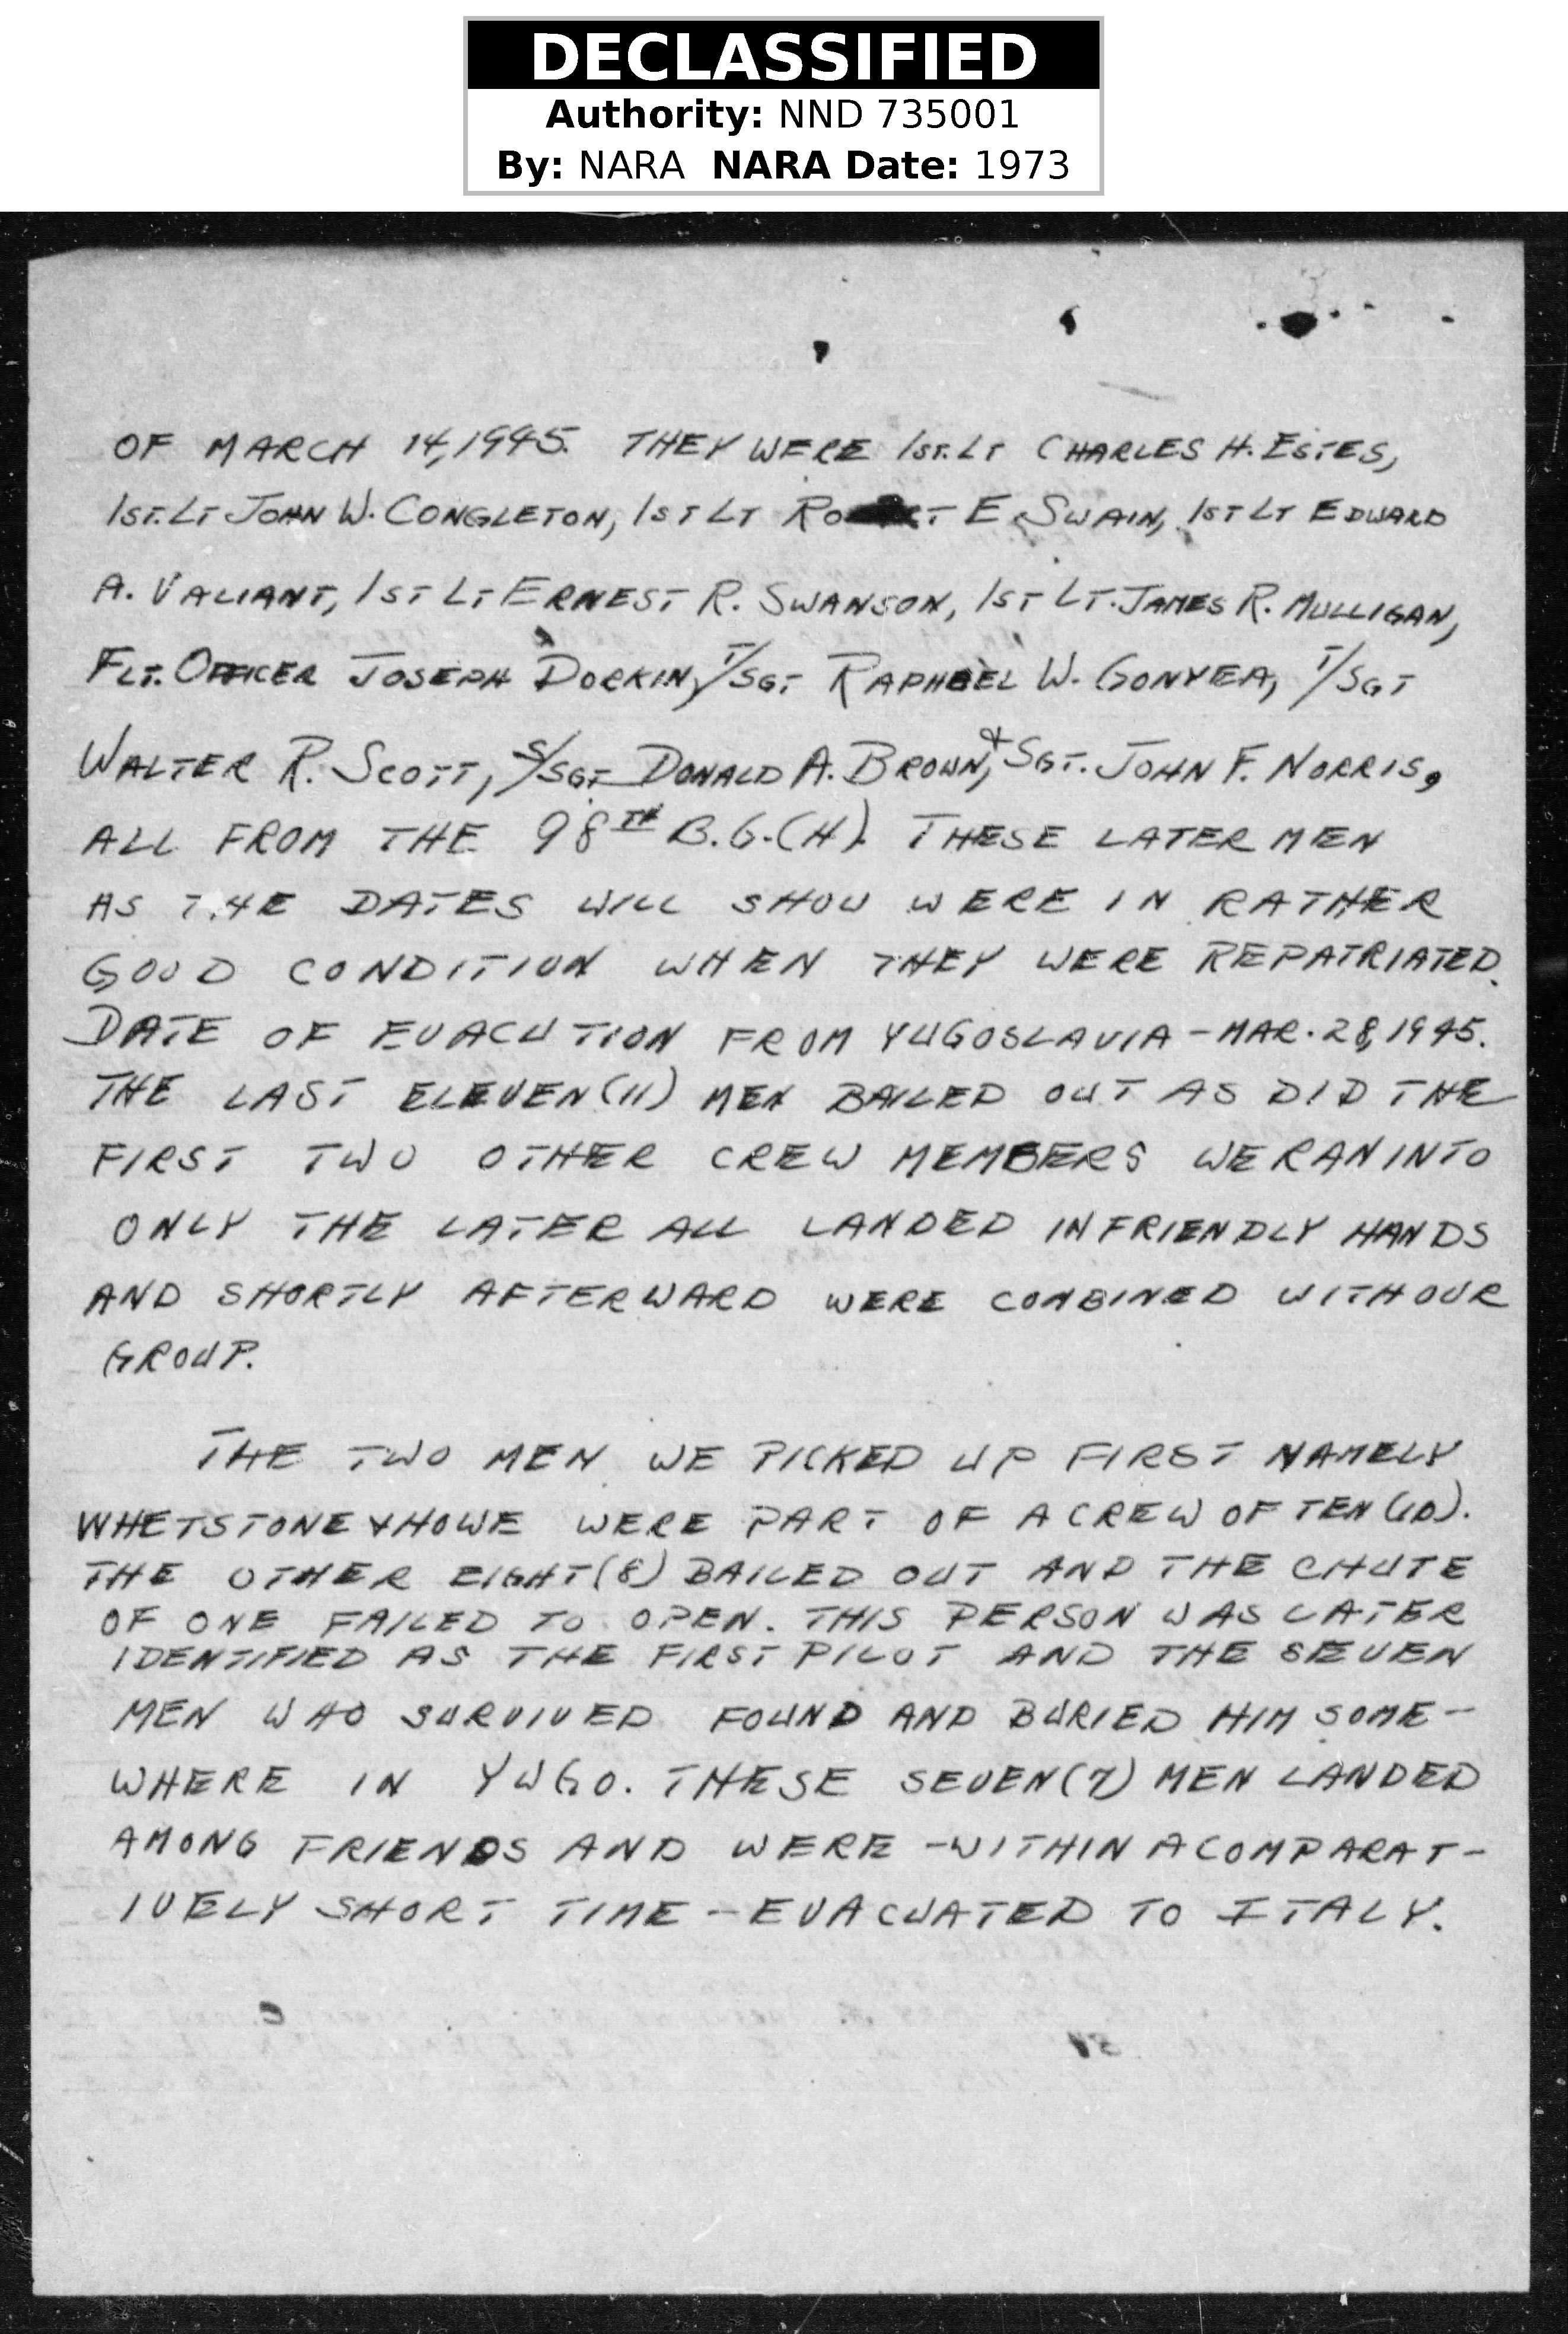 DECLASSIFIED
Authority: NND 735001
By: NARA NARA Date: 1973
OF MARCH 14, 1945. THEY WERE 1ST. LT CHARLES H. ESTES,
1ST. LT JOHN W. CONGLETON, 1ST LT E. SWAIN, 1ST LT EDWARD
A. VALIANT, 1ST LT ERNEST R. SWANSON, 1ST LT. JAMES R. MULLIGAN,
FLT. OFFICER JOSEPH DORKIN, T/SGT RAPHAEL W. GONYEA, T/SGT
WALTER R. SCOTT, S/SGT DONALD A. BROWN, & SGT. JOHN F. NORRIS,
ALL FROM THE 98TH B.G.(H). THESE LATER MEN
AS THE DATES WILL SHOW WERE IN RATHER
GOOD CONDITION WHEN THEY WERE REPATRIATED.
DATE OF EVACUTION FROM YUGOSLAVIA - MAR. 28, 1945.
THE LAST ELEVEN (11) MEN BAILED OUT AS DID THE
FIRST TWO OTHER CREW MEMBERS WE RAN INTO
ONLY THE LATER ALL LANDED IN FRIENDLY HANDS
AND SHORTLY AFTERWARD WERE COMBINED WITH OUR
GROUP.
THE TWO MEN WE PICKED UP FIRST NAMELY
WHETSTONE & HOWE WERE PART OF A CREW OF TEN (10).
THE OTHER EIGHT (8) BAILED OUT AND THE CHUTE
OF ONE FAILED TO OPEN. THIS PERSON WAS LATER
IDENTIFIED AS THE FIRST PILOT AND THE SEVEN
MEN WHO SURVIVED FOUND AND BURIED HIM SOME-
WHERE IN YUGO. THESE SEVEN (7) MEN LANDED
AMONG FRIENDS AND WERE - WITHIN A COMPARAT-
IVELY SHORT TIME - EVACUATED TO ITALY.